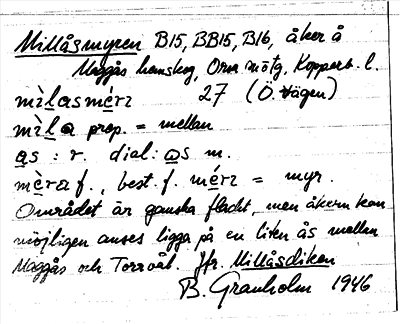 Millåsmyren B15, BB15, B16, åker å
Maggås hemskog, Orsa Kopparb. l.
mìlasmérı 27 (Ö. vägen)
mìla prep. = mellan
as : r. dial: as m.
mèra f., best. f. mérı = myr.
Området är ganska flackt, men åkern kan
möjligen anses ligga på en liten ås mellan
Maggås och Torrvål. Jfr. Millåsdiken
B. Granholm 1946